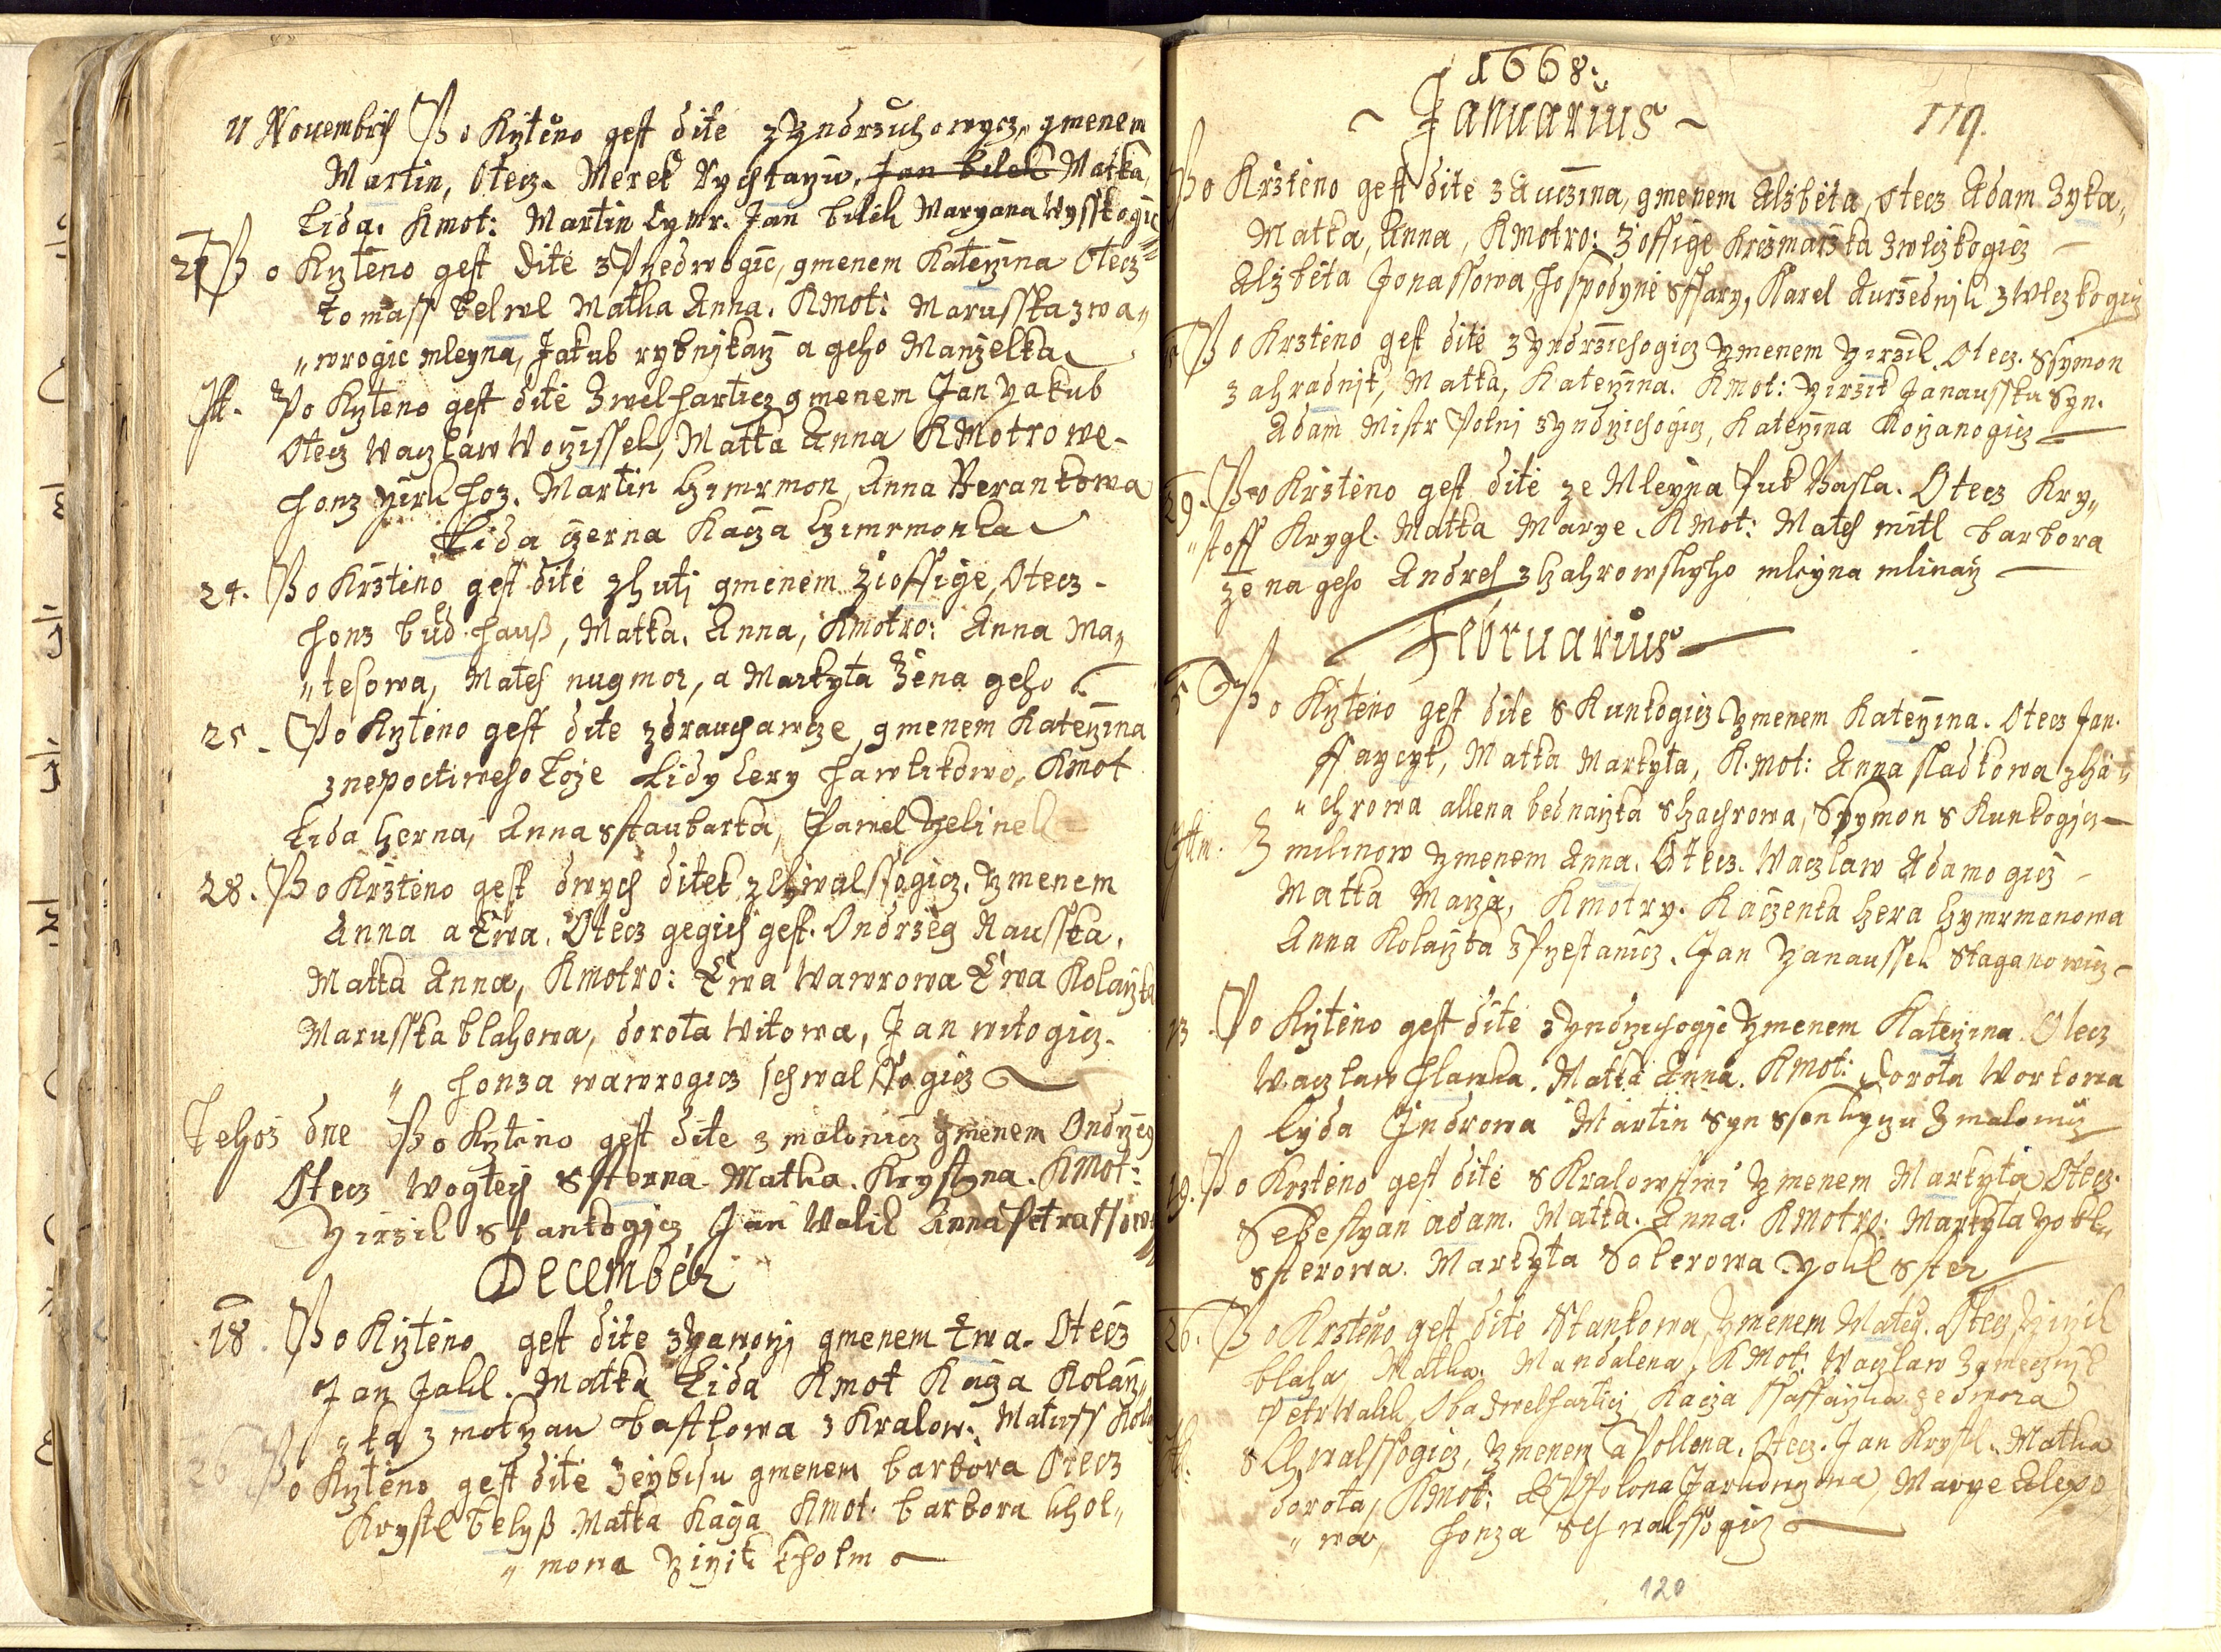 11 Nouembris Po Krztěno gest ditě z Yndrzuchowycz, gmenem
Martin, Otecz Merek Rychtarzů, Jan Bilek Matka
Lida. Kmot: Martin Cymr. Jan bilek Maryana Wysskogic
21 Po Krztěno gest Ditě z Przedwogic, gmenem Katerzina Otecz
tomass belwl Matka Anna. Kmot: Marusska z wa„
„wrogic mleyna, Jakub rybnikarz a geho Manzelka
It. Po Krzteno gest ditě z welharticz gmenem Jan Yakub
Otecz Waczlaw Worzissek, Matka Anna KMotrowe
honz yirk hoz. Martin Czimrmon, Anna Berankowa
Lida czerna Kacza Czimrmonka
24. Po Krzstěno gest ditě z huti gmenem Zioffige, Otecz
honz bud hauß, Matka. Anna, Kmotro: Anna Ma„
„tesowa, Mates nugmor, a Markyta Žena geho
25. Po Krztěno gest dite z drauhawcze, gmenem Katerzina
z nepoctiweho Loze Lidy Cery hawlikowo, Kmot
Lida Czerna, Anna sstaubarka, Pawel Yelinek
28. Po Krzstěno gest dwych ditek z Chwalssogicz. Ymenem
Anna a Ewa. Otecz gegich gest. Ondrzeg Rausska.
Matka Anna, Kmotro: Ewa Wawrowa Ewa Kolarzka
Marusska blahowa, dorota Witowa, Jan witogicz.
„ honza wawrogicz schwalssogicz
Tehoz dne Po Krztěno gest dite z malonicz gmenem Ondrzeg
Otecz Wogtech ssterna Matka. Krystyna. Kmot:
Yirzik stankogicz Jan Walik Anna Petrassow
December
18. Po Krztěno gest dite z yaworzi gmenem Ewa. Otecz
Jan Jakl. Matka Lida Kmot Kacza Kolarz„
„ka z mokrzan bastlowa z Kralow: Matuss Kol
26 Po Krztěno gest ditě Zeybisu gmenem barbora Otecz
Krystl belyß Matka Kacza Kmot. barbora khol„
„mowa Yirzik kholm
1668:
~ Januarius ~
119.
Po Krzstěno gest ditě z Auczina, gmenem Alzběta, Otecz Adam Zyka„
Matka, Anna, Kmotro: Zioffige Krczmarzka z wlczkogicz
Alzběta Jonassowa hospodyně s ffary, Karel Aurzednjk z Wlczkogicz
Po Krzstěno gest ditě z Yndrzichogicz Ymenem Yirzik Otecz. Ssymon
zahradnjk, Matka, Katerzina. Kmot: Yirzik Janausska Syn.
Adam Mistr Polnj z Yndrzichogicz, Katerzina Korzanogicz
29. Po Krzstěno gest ditě ze Mleyna Puk Basla. Otecz Kry„
„stoff Krygl. Matka Marye. Kmot: Mates mitl barbora
žena geho Andres z Czahrowskyho mleyna mlinarz
Februarius
5 Po Krztěno gest dite s Kunkogicz Ymenem Katerzina. Otecz Jan.
ffaycyk, Matka Markyta, K.mot: Anna sladkowa z Cza„
„chrowa allena bednarzka s Czachrowa, Ssymon s Kunkogicz
Itm. Z milinow Ymenem Anna. Otecz. Waczlaw Adamogicz
Matka Marza, Kmotry. Kaczenka Czera Czymrmanowa
Anna Kolarzka z Przestanicz. Jan Yanaussek Staganowicz
13. Po Krztěno gest ditě z Yndrzichogic Ymenem Katerzina. Otecz
Waczlaw hlawka. Matka Anna. Kmot: Dorota Workowa
Lyda Jndrowa Martin Syn ssenkyrzu Z malonicz
19. Po Krzstěno gest ditě s Kralowstwi Ymenem Markyta Otecz
Sebestyan adam. Matka. Anna. Kmotro: Markyta Yokl„
ssterowa. Markyta Soterowa Yokl sster
26. Po Krzstěno gest ditě Stankowa Ymenem Matieg. Otecz Yirzik
blaha Matka. Mandalena, KMot: Waczlaw Zamecznjk
Petr Walik Oba z welharticz Kacza ssaffarzka ze dwora
It: s Chwalssogicz, Ymenem Apollona. Otecz. Jan Krystl. Matka
dorota, KMot: Appolona Jarkowna, Marye Alexo„
„wa, honza s Chwalssogicz
120